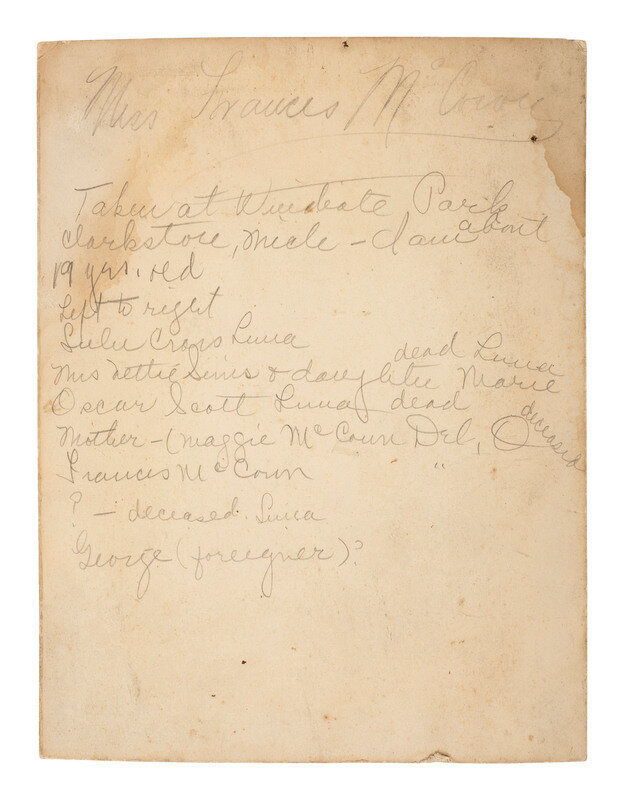 Miss Frances McCown
Taken at Park
Clarkston, Mich - I am about
19 yrs. old
Left to right
Lulu Cross Lima
Mrs Nettie Sims & daughter Marie dead Lima
Oscar Scott Lima dead
Mother - (Maggie McCown Del, O deceased
Frances McCown "
? - deceased. Lima
George (foreigner)?